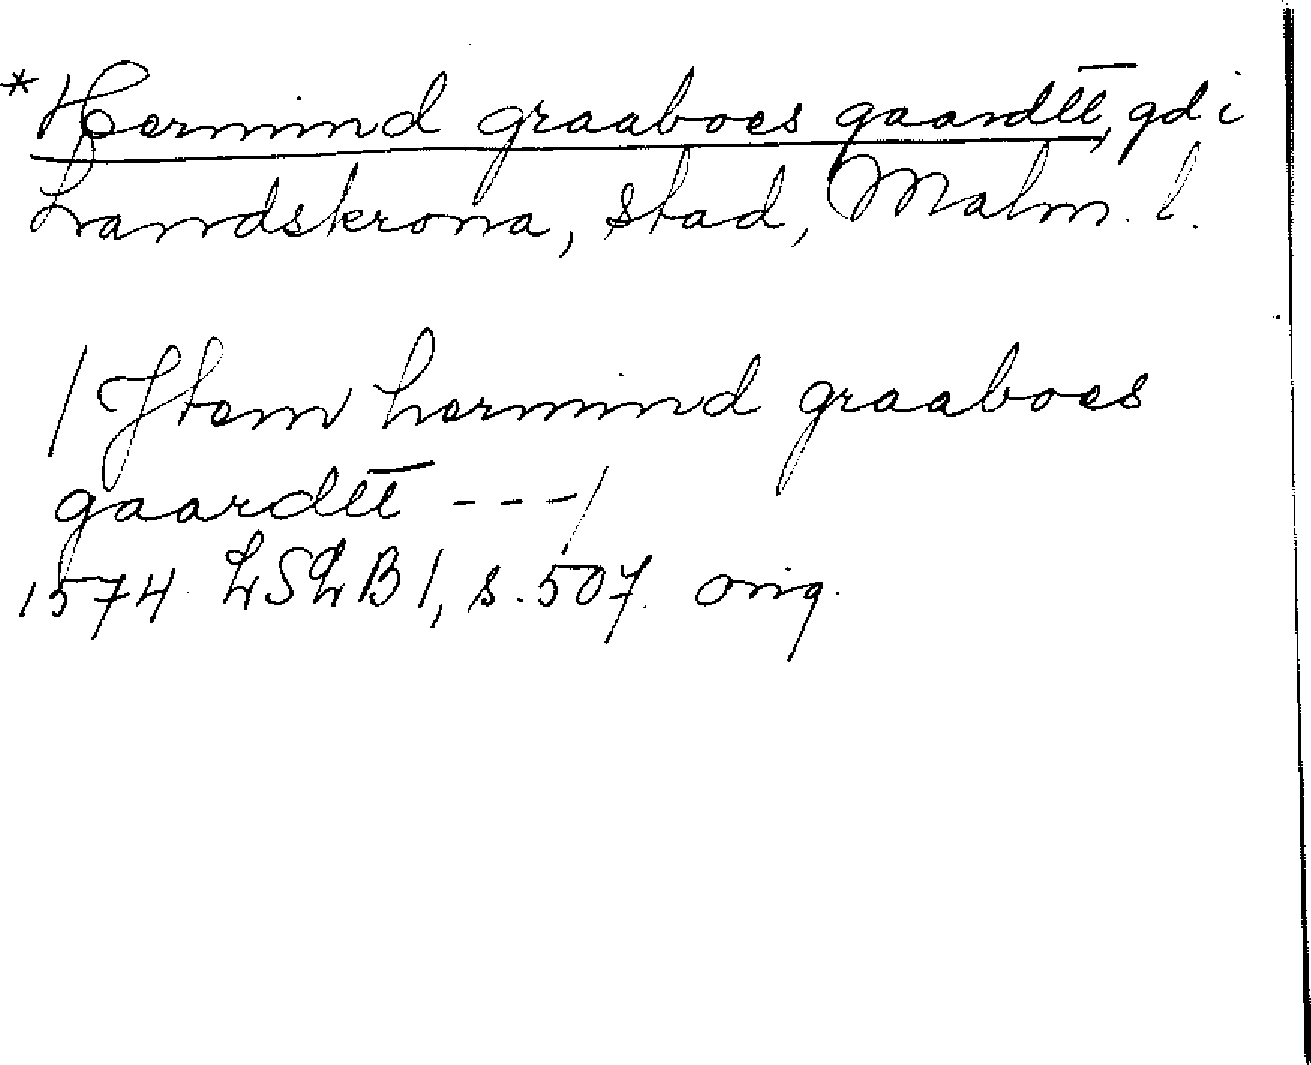 *Hermind graaboes gaardtt̅, gd i
Landskrona, stad, Malm. l.
/Jtem hermind graaboes
gaardtt̅ ---/
1574 LSLB 1, s. 507. orig.